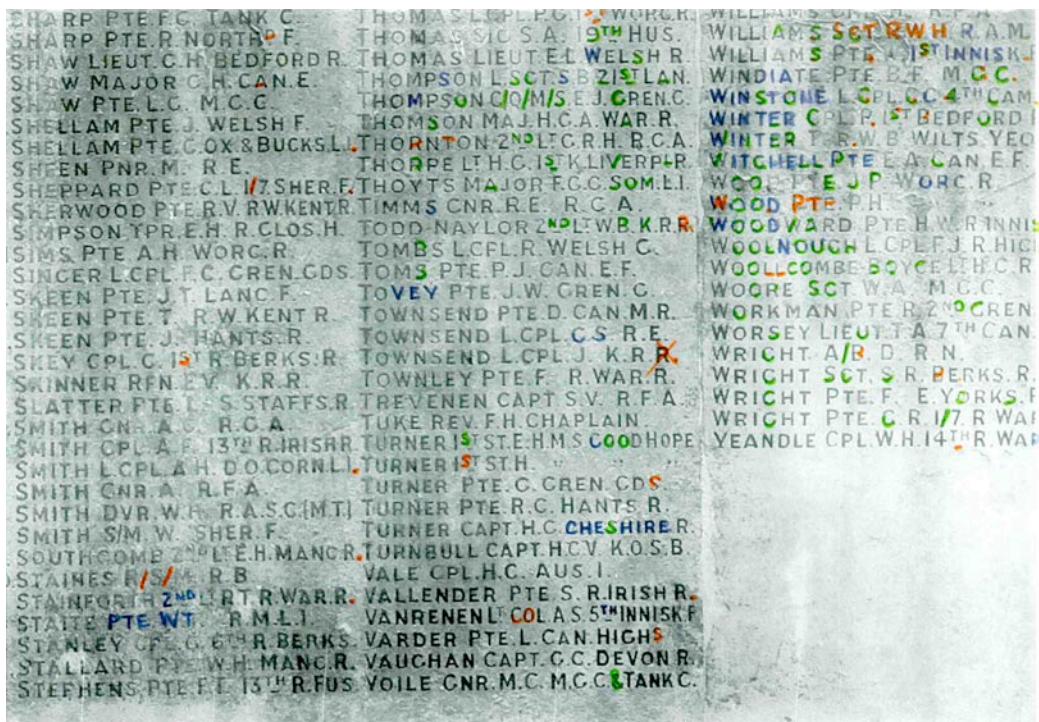 SHARP PTE. F.C. TANK C.
SHARP PTE. R. NORTH'D F.
SHAW LIEUT. G.H. BEDFORD R.
SHAW MAJOR G.H. CAN. E.
SHAW PTE. L.C. M.G.C.
SHELLAM PTE. J. WELSH F.
SHELLAM PTE. C. OX & BUCKS. L.I.
SHEEN PNR. M. R.E.
SHEPPARD PTE. C.L. 1/7. SHER. F.
SHERWOOD PTE. R.V. R.W. KENT R.
SIMPSON TPR. E.H. R. GLOS. H.
SIMS PTE A.H. WORC. R.
SINGER L.CPL. F.C. GREN. GDS.
SKEEN PTE. J.T. LANC. F.
SKEEN PTE. T. R.W. KENT R.
SKEEN PTE. J. HANTS. R.
SKEY CPL. C. 1ST R. BERKS. R.
SKINNER RFN. E.V. K.R.R.
SLATTER PTE. L. S. STAFFS. R.
SMITH GNR. A.G. R.G.A.
SMITH CPL. A.F. 13TH R. IRISH R.
SMITH L.CPL. A.H. D.O. CORN. L.I.
SMITH GNR. A. R.F.A.
SMITH DVR. W.H. R.A.S.C. (M.T.)
SMITH S/M. W. SHER. F.
SOUTHCOMB 2ND LT. E.H. MANC. R.
STAINES R/S/M. R.B.
STAINFORTH 2ND LT. R.T. R. WAR. R.
STAITE PTE WT R.M.L.I.
STANLEY CPL. G. 6TH R. BERKS.
STALLARD PTE. W.H. MANC. R.
STEPHENS PTE. F.T. 13TH R. FUS.
THOMAS L.CPL. P.G. 1ST WORC. R.
THOMAS SIG. S.A. 19TH HUS.
THOMAS LIEUT. E.L. WELSH R.
THOMPSON L.SGT. S.B. 21ST LAN.
THOMPSON C/Q/M/S. E.J. GREN. G.
THOMSON MAJ. H.G.A. WAR. R.
THORNTON 2ND LT. G.R.H. R.G.A.
THORPE LT. H.G. 1ST K. LIVERP'L R.
THOYTS MAJOR F.G.G. SOM. L.I.
TIMMS GNR. R.E. R.G.A.
TODD-NAYLOR 2ND LT. W.B. K.R.R.
TOMBS L.CPL. R. WELSH G.
TOMS PTE. P.J. CAN. E.F.
TOVEY PTE. J.W. GREN. G.
TOWNSEND PTE D. CAN. M.R.
TOWNSEND L.CPL. C.S. R.E.
TOWNSEND L.CPL. J. K.R.R.
TOWNLEY PTE. F. R. WAR. R.
TREVENEN CAPT S.V. R.F.A.
TUKE REV. F.H. CHAPLAIN.
TURNER 1ST ST. E. H.M.S GOOD HOPE
TURNER 1ST ST. H. " " "
TURNER PTE. G. GREN. GDS
TURNER PTE. R.C. HANTS R.
TURNER CAPT. H.C. CHESHIRE R.
TURNBULL CAPT. H.C.V. K.O.S.B.
VALE CPL. H.C. AUS. I.
VALLENDER PTE S. R. IRISH R.
VANRENEN LT COL A.S. 5TH INNISK. F
VARDER PTE. L. CAN. HIGHS
VAUGHAN CAPT. G.C. DEVON R.
VOILE GNR. M.C. M.G.C. & TANK C.
WILLIAMS R.F.A.
WILLIAMS SGT RWH R.A.M.
WILLIAMS PT 1ST INNISK. F
WINDIATE PTE B.F. M.G.C.
WINSTONE L.CPL. C.C. 4TH CAM.
WINTER CPL. P. 1ST BEDFORD
WINTER T. R.W.B. WILTS YEO
WITCHELL PTE E.A. CAN. E.F.
WOOD PTE J.P. WORC. R.
WOOD PTE. P.H.
WOODWARD PTE. H.W. R. INNIS
WOOLNOUGH L.CPL. F.J. R HIG
WOOLLCOMBE-BOYCE LT. H.C. R
WOORE SGT W.A. M.G.C.
WORKMAN PTE R. 2ND GREN.
WORSEY LIEUT T.A. 7TH CAN.
WRIGHT A/B. D. R.N.
WRIGHT SGT. S. R. BERKS. R.
WRIGHT PTE. F. E. YORKS. R
WRIGHT PTE. G. R. 1/7. R WAR
YEANDLE CPL. W.H. 14TH R. WAR